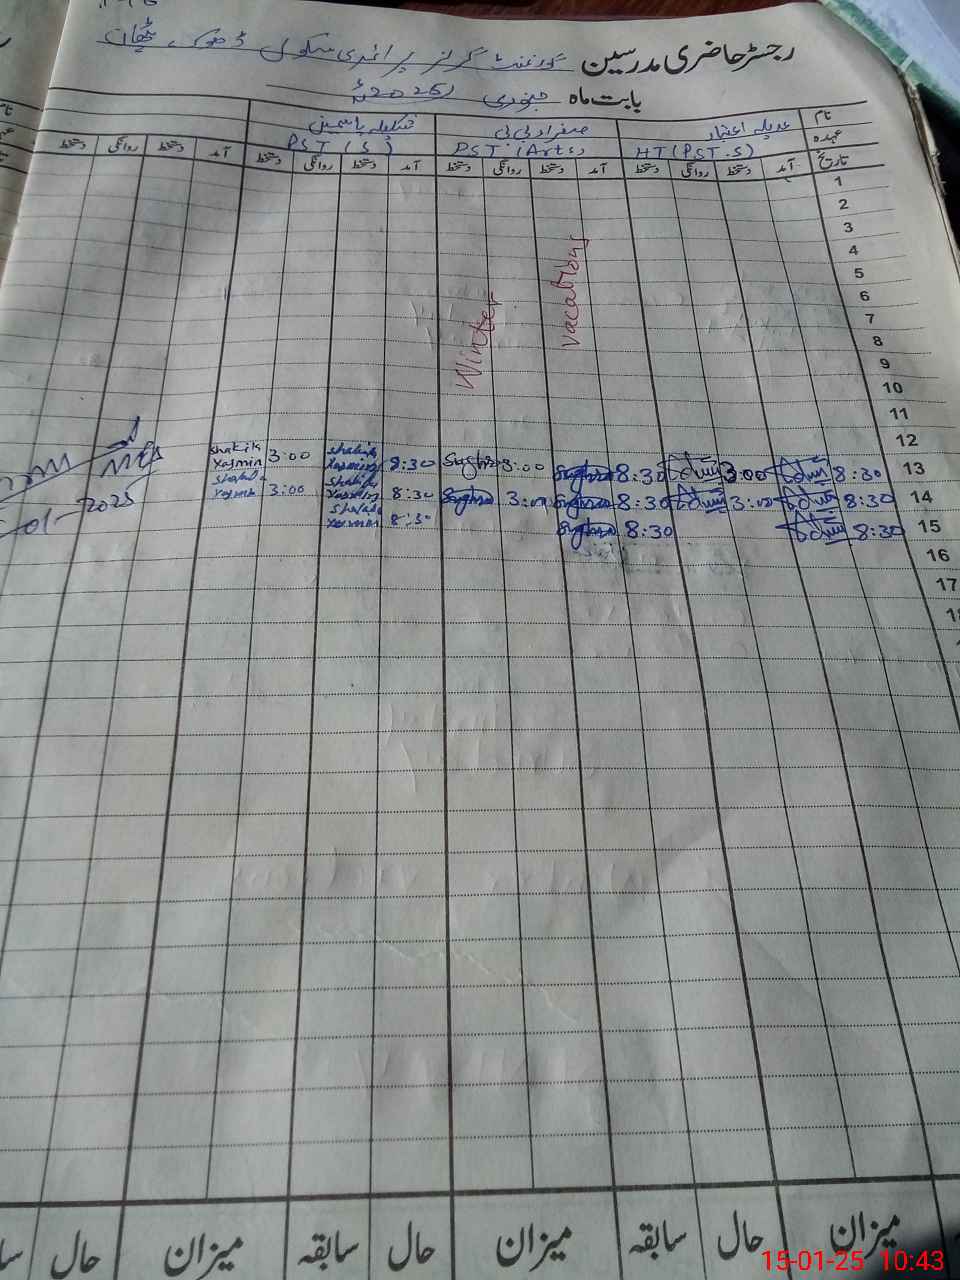 رجسٹر حاضری مدرسین گورنمنٹ گرلز پرائمری سکول ڈھوک پٹھان
بابت ماہ جنوری 2025ء
نام عدیلہ اعتبار صغراں بی بی شکیلہ یاسمین
عہدہ HT (PST.S) PST (Arts) PST (S)
تاریخ آمد دستخط روانگی دستخط آمد دستخط روانگی دستخط آمد دستخط روانگی دستخط آمد دستخط روانگی دستخط
1
2
3
4
5
6
7
8
9
10
11
12
Winter vacations
13 8:30 3:00 8:30 Sughra 3:00 Sughra 8:30 Shakila Yasmin 3:00 Shakila Yasmin
14 8:30 3:00 8:30 Sughra 3:00 Sughra 8:30 Shakila Yasmin 3:00 Shakila Yasmin
15 8:30 8:30 Sughra 8:30 Shakila Yasmin
01-2025
16
17
18
میزان حال سابقہ میزان حال سابقہ میزان حال
15-01-25 10:43